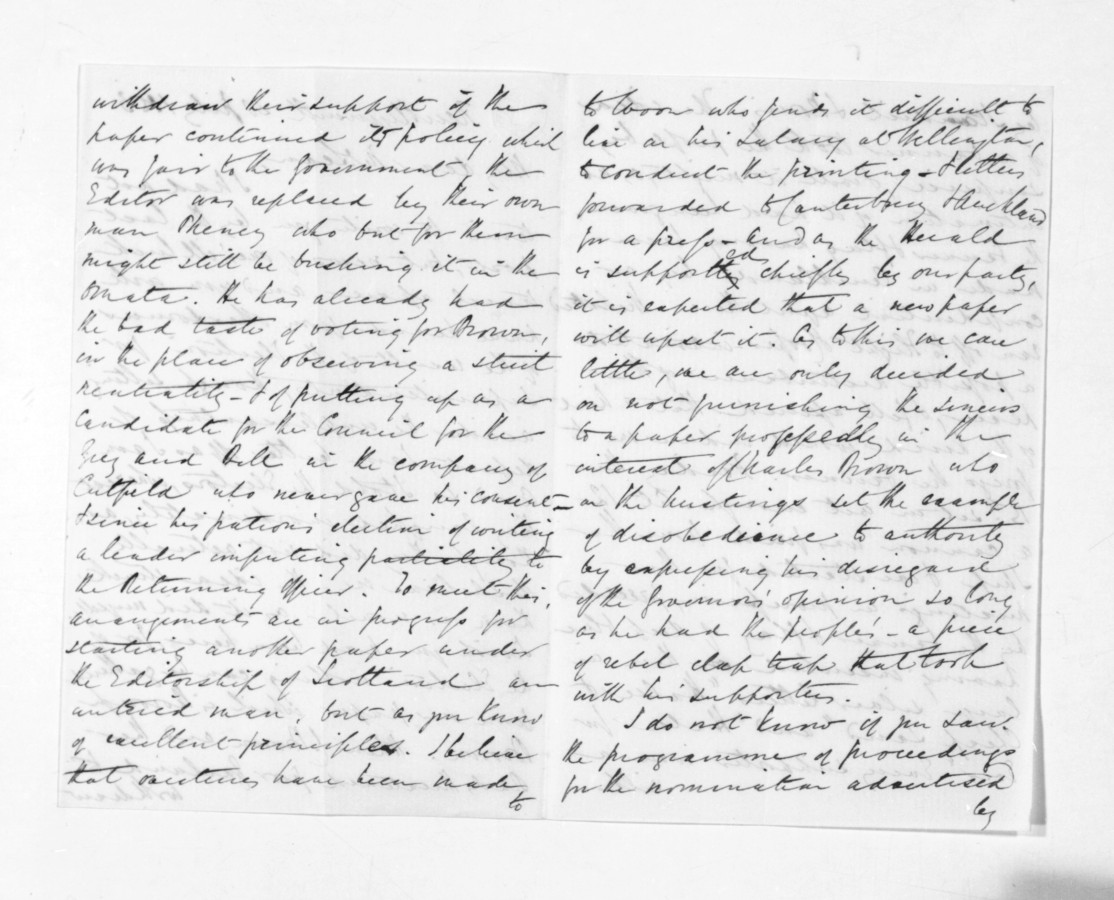 withdraw their support if the
paper continued its policy which
was fair to the Government, the
Editor was replaced by their own
man Pheney who but for them
might still be bushing it in the
Omata. He has already had
the bad taste of voting for Brown,
in the place of observing a strict
neutrality - & of putting up as a
candidate for the Council for the
Grey and Bell in the company of
Cutfield who never gave his consent -
& since his patron's election of writing
a leader imputing partiality to
the Returning Officer. To meet this,
arrangements are in progress for
starting another paper under
the Editorship of Scotland an
untried man, but as you know
of excellent principles. I believe
that overtures have been made
to
to Woon who finds it difficult to
live on his salary at Wellington,
to conduct the printing - & letters
forwarded to Canterbury & Auckland
for a press - and as the Herald
is supported chiefly by our party,
it is expected that a new paper
will upset it. As to this we care
little, we are only decided
on not furnishing the sinews
to a paper professedly in the
interest of Charles Brown who
on the hustings set the example
of disobedience to authority
by expressing his disregard
of the Governor's opinion so long
as he had the people's - a piece
of rebel clap trap that took
with his supporters.
I do not know if you saw
the programme of proceedings
for the nomination advertised
by